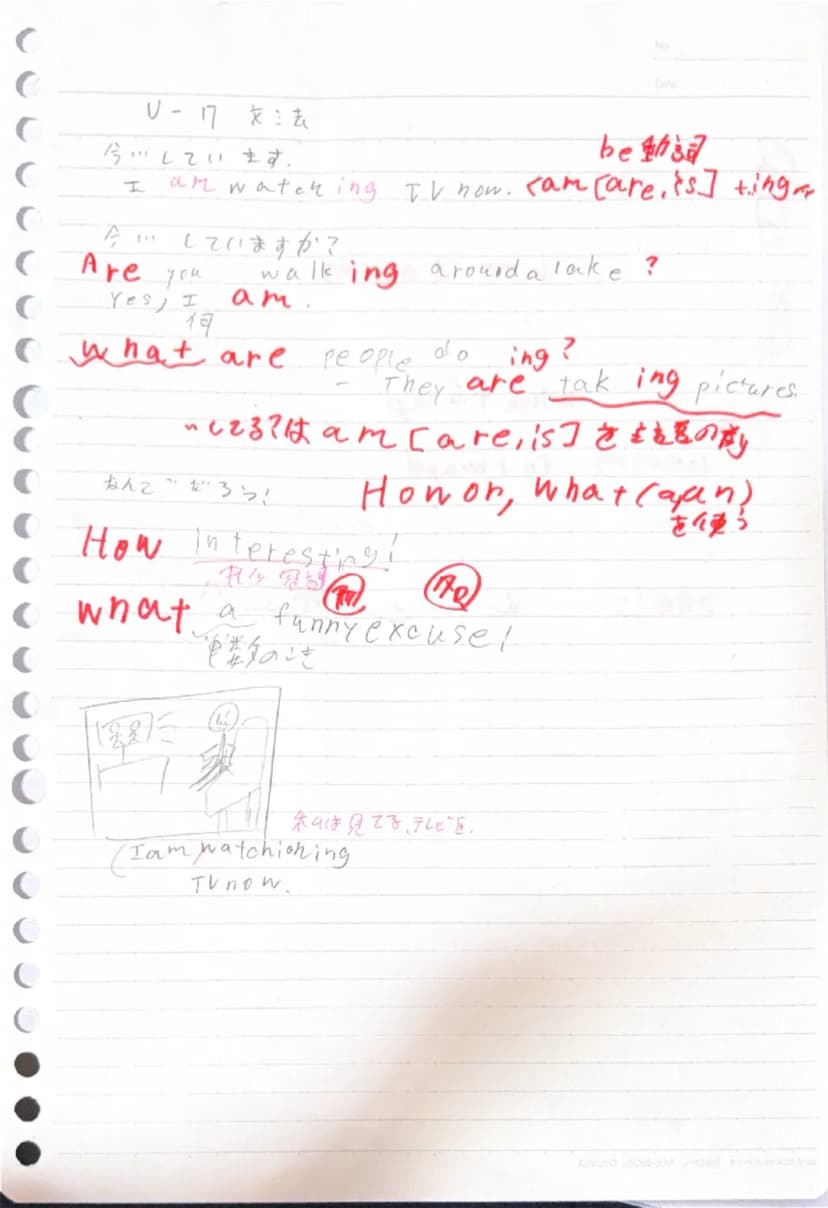 No.
Date
U-17 文法
今…しています.
be動詞
I am watching TV now. <am[are, is] +ing
今… していますか?
Are you walk ing around a lake ?
Yes, I am.
何
what are people do ing ?
- They are tak ing pictures.
…してる?は am [are, is] を
なんて～だろう!
How or, what (a, an)
を使う
How interesting!
形
名
what a funny excuse!
単数のとき
私は見てる、テレビを.
(I am watchioning
TV now.